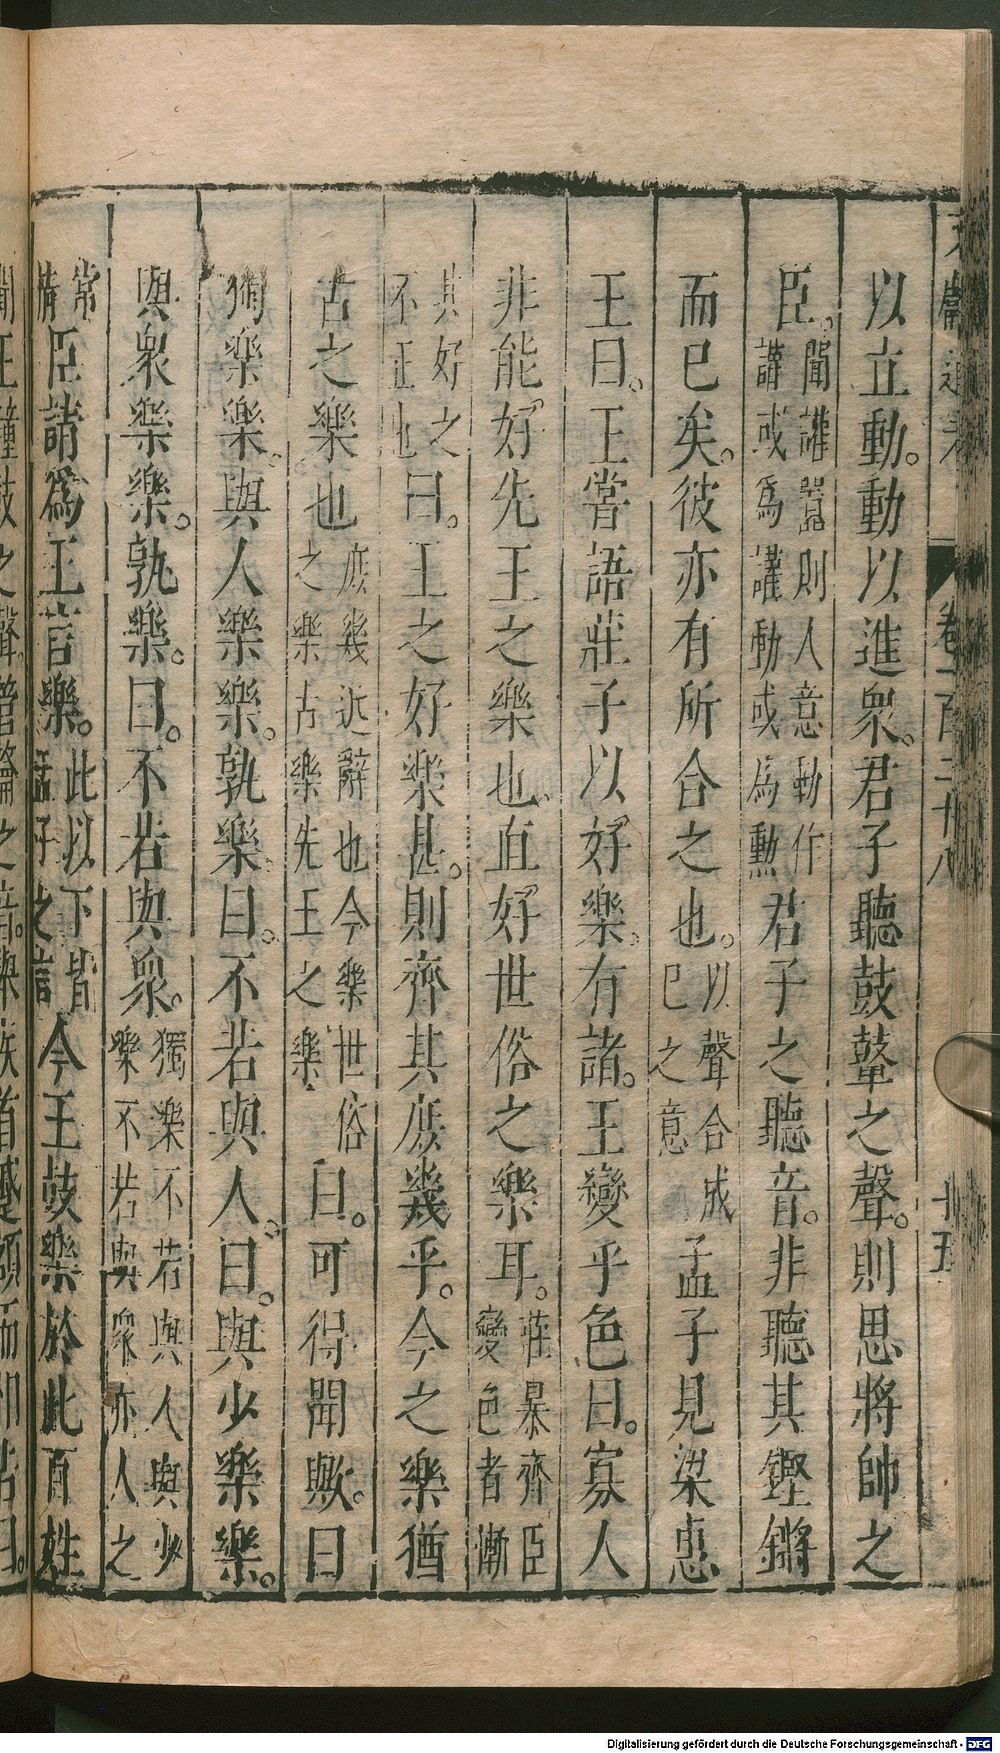 文獻通考 卷一百二十八 十五
以立動。動以進衆。君子聽鼓鼙之聲。則思將帥之
臣。聞讙嚻則人意動作讙或爲讙動或爲勳君子之聽音。非聽其鏗鏘
而已矣。彼亦有所合之也。以聲合成己之意孟子見梁惠
王曰。王嘗語莊子以好樂。有諸。王變乎色曰。寡人
非能好先王之樂也。直好世俗之樂耳。莊暴齊臣變色者慚
其好之不正也曰。王之好樂甚。則齊其庶幾乎。今之樂猶
古之樂也庶幾近辭也今樂世俗之樂古樂先王之樂曰。可得聞歟。曰
獨樂樂。與人樂樂。孰樂。曰。不若與人。曰。與少樂樂。
與衆樂樂。孰樂。曰。不若與衆。獨樂不若與人與少樂不若與衆亦人之
常情臣請爲王言樂。此以下皆孟子之言今王鼓樂於此百姓
聞王鐘鼓之聲。管籥之音。舉疾首蹙頞而相告曰。
Digitalisierung gefördert durch die Deutsche Forschungsgemeinschaft - DFG